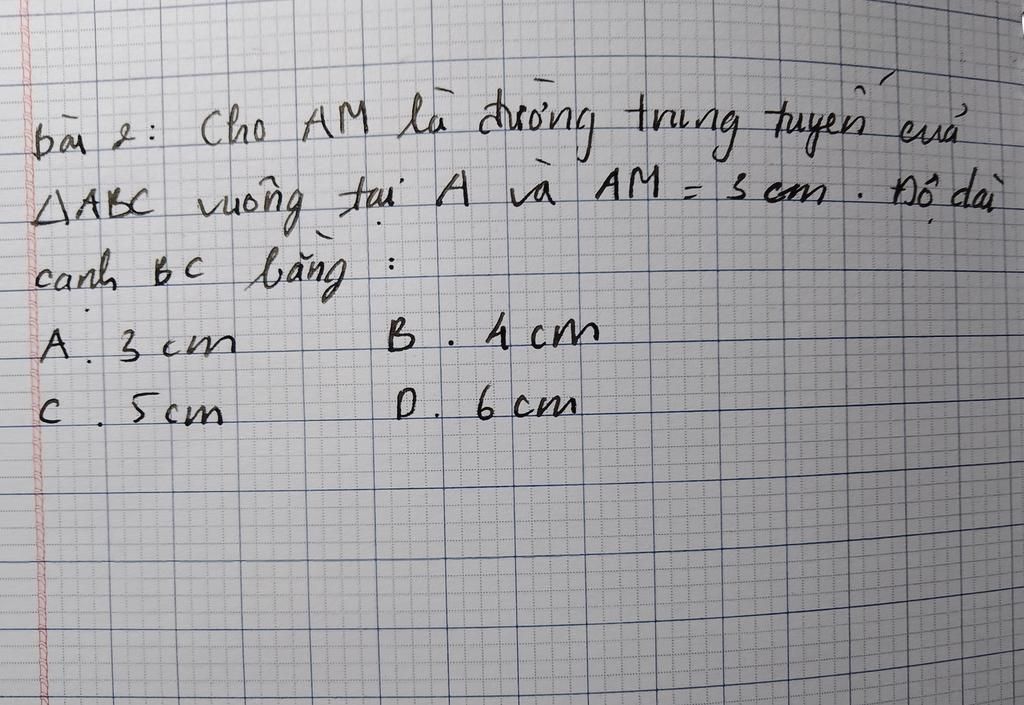 bài 2: Cho AM là đường trung tuyến của
△ABC vuông tại A và AM = 3 cm. Độ dài
cạnh BC bằng :
A. 3 cm B. 4 cm
C. 5 cm D. 6 cm